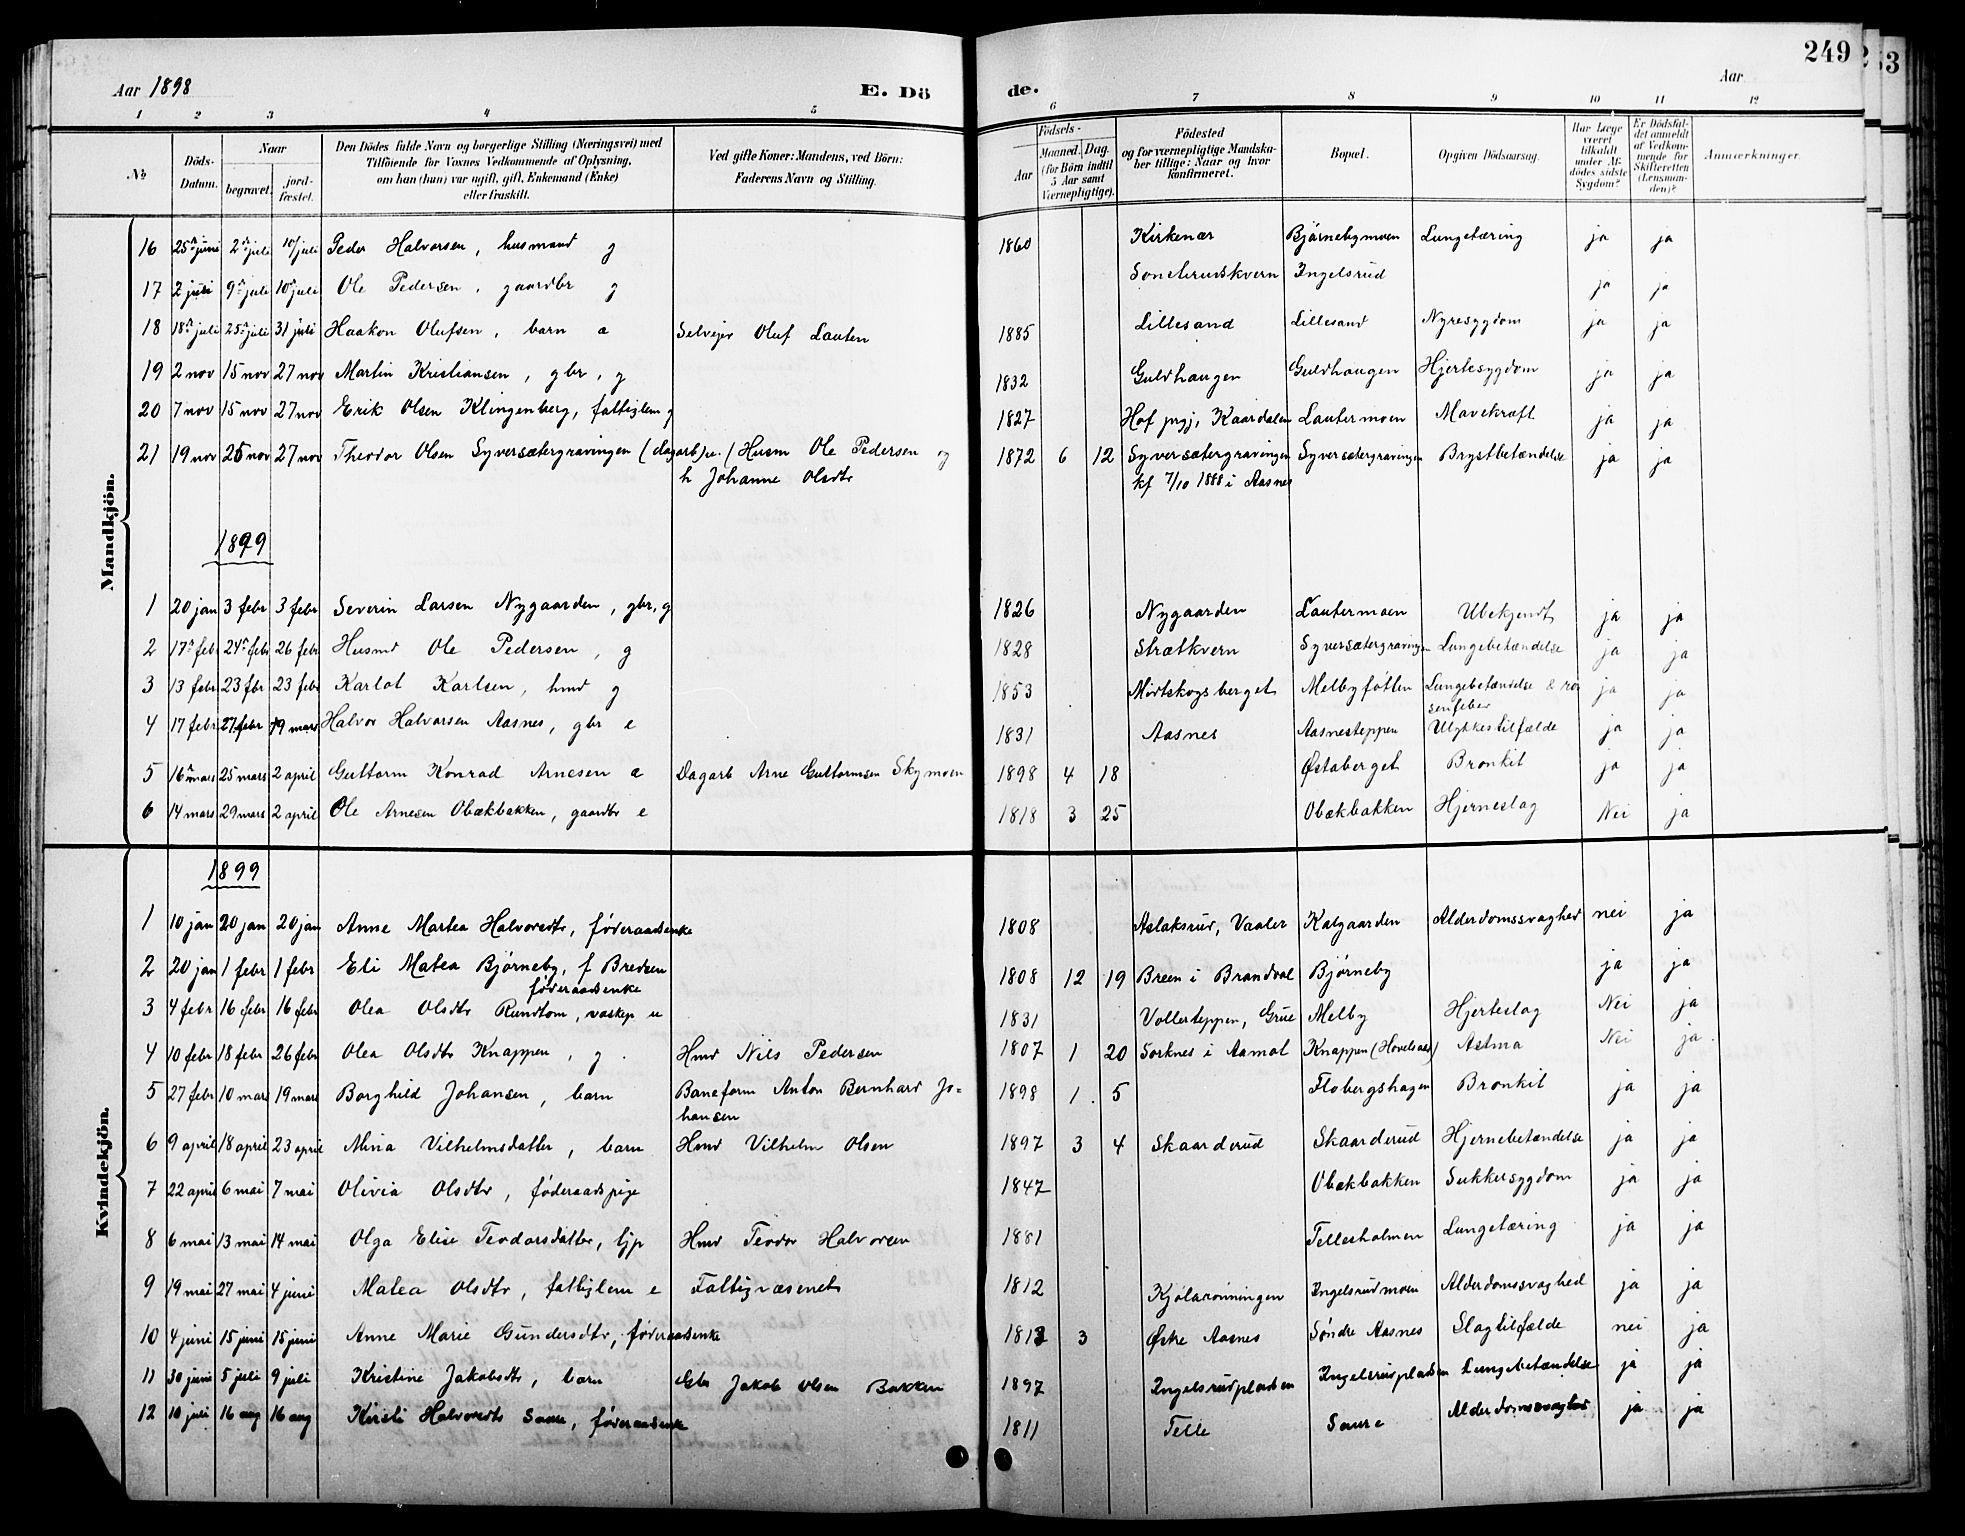 249
3
Aar 1898 E. Dö de. Aar
1 2 3 4 5 6 7 8 9 10 11 12
No
Döds-Datum.
Naar
begravet.
jordfæstet.
Den Dödes fulde Navn og borgerlige Stilling (Næringsvei) med
Tilföiende for Voxnes Vedkommende af Oplysning,
om han (hun) var ugift, gift, Enkemand (Enke)
eller fraskilt.
Ved gifte Koner: Mandens, ved Börn:
Faderens Navn og Stilling.
Födsels-
Aar
Maaned. Dag.
(for Börn indtil
5 Aar samt
Værnepligtige).
Födested
og for værnepligtige Mandska-
ber tillige: Naar og hvor
konfirmeret.
Bopæl.
Opgiven Dödsaarsag.
Har Læge
været
tilkaldt
under Af-
dödes sidste
Sygdom?
Er Dödsfal-
det anmeldt
af Vedkom-
mende for
Skifteretten
(Lensman-
den)?
Anmærkninger.
Mandkjön.
16 25 juni 2 juli 10 juli Peder Halvorsen, husmand g 1860 Kirkenær Bjørnebymoen Lungetæring ja ja
17 2 juli 9 juli 10 juli Ole Pedersen, gaardbr g Ingelsrud ja ja
18 18 juli 25 juli 31 juli Haakon Olufsen, barn a Selveier Oluf Lauten 1885 Lillesand Lillesand Nyresygdom ja ja
19 2 nov 15 nov 27 nov Martin Kristiansen, gbr, g 1832 Guldhaugen Guldhaugen Hjertesygdom ja ja
20 7 nov 15 nov 27 nov Erik Olsen Klingenberg, fattiglem g 1827 Hof prgj, Kaardalen Lautermoen Mavekræft ja ja
21 19 nov 26 nov 27 nov Theodor Olsen Syversætergravingen (dagarb) u. / Husm Ole Pedersen og 1872 6 12 Syversætergravingen Syversætergravingen Brystbetændelse ja ja
h Johanne Olsdtr kf 7/10 1888 i Aasnes
1899
1 20 jan 3 febr 3 febr Severin Larsen Nygaarden, gbr, g 1826 Nygaarden Lautermoen Ubekjendt ja ja
2 17 feb 24 febr 26 febr Husmd Ole Pedersen, g 1828 Strætkvern Syversætergravingen Lungebetændelse ja ja
3 13 febr 23 fbr 23 febr Karlot Karlsen, hmd g 1853 Mørtskogsberget Melbyfotten Lungebetændelse & ro-
senfeber ja ja
4 17 febr 27 febr 19 mars Halvor Halvorsen Aasnes, gbr e 1831 Aasnes Aasnesteppen Ulykkestilfælde ja ja
5 16 mars 25 mars 2 april Guttorm Konrad Arnesen a Dagarb Arne Guttormsen Skymoen 1898 4 18 Østaberget Bronkit ja ja
6 14 mars 29 mars 2 april Ole Arnesen Obækbakken, gaardbr e 1818 3 25 Obækbakken Hjerneslag Nei ja
Kvindekjön.
1899
1 10 jan 20 jan 20 jan Anne Martea Halvorsdtr, føderaadsenke 1808 Aslaksrud, Vaaler Kalgaarden Alderdomssvaghed nei ja
2 20 jan 1 febr 1 febr Eli Matea Bjørneby, f Bredsen 1808 12 19 Breen i Brandval Bjørneby ja ja
føderaadsenke
3 4 febr 16 febr 16 febr Olea Olsdtr Rundtom, vaskep u 1831 Vollerteppen, Grue Melby Hjerteslag Nei ja
4 10 febr 18 febr 26 febr Olea Olsdtr Knappen, g. Hmd Nils Pedersen 1807 1 20 Sorknes i Aamot Knappen (Hovelsaas) Astma Nei ja.
5 27 febr 10 mars 19 mars Borghild Johansen, barn Baneform Anton Bernhard Jo- 1898 1. 5 Flobergshagen Bronkit ja ja
hansen
6 9 april 18 april 23 april Mina Vilhelmsdatter, barn Hmd Vilhelm Olsen 1897 3 4 Skaarderud Skaarderud Hjernebetændelse ja ja
7 22 april 6 mai 7 mai Olivia Olsdtr, føderaadspige 1847 Obækbakken Sukkersygdom ja ja
8 6 mai 13 mai 14 mai Olga Elise Teodorsdatter, tjp Hmd Teodor Halvorsen 1881 Tellesholmen Lungetæring ja ja
9 19 mai 27 mai 4 juni Matea Olsdtr, fattiglem e Fattigvæsenet 1812 Kjølarønningen Ingelsrudmoen Alderdomssvaghed ja ja
10 4 juni 15 juni 15 juni Anne Marie Gundersdtr, føderaadsenke 1813 3 Østre Aasnes Søndre Aasnes Slagtilfælde nei ja
11 30 juni 5 juli 9 juli Kristine Jakobsdtr, barn Gbr Jakob Olsen Bakken 1897 Ingelsrudpladsen Ingelsrudpladsen Lungebetændelse ja ja
12 10 juli 16 aug 16 aug Kirsti Halvorsdtr Saure, føderaadsenke 1811 Telle Saure Alderdomssvaghed ja ja